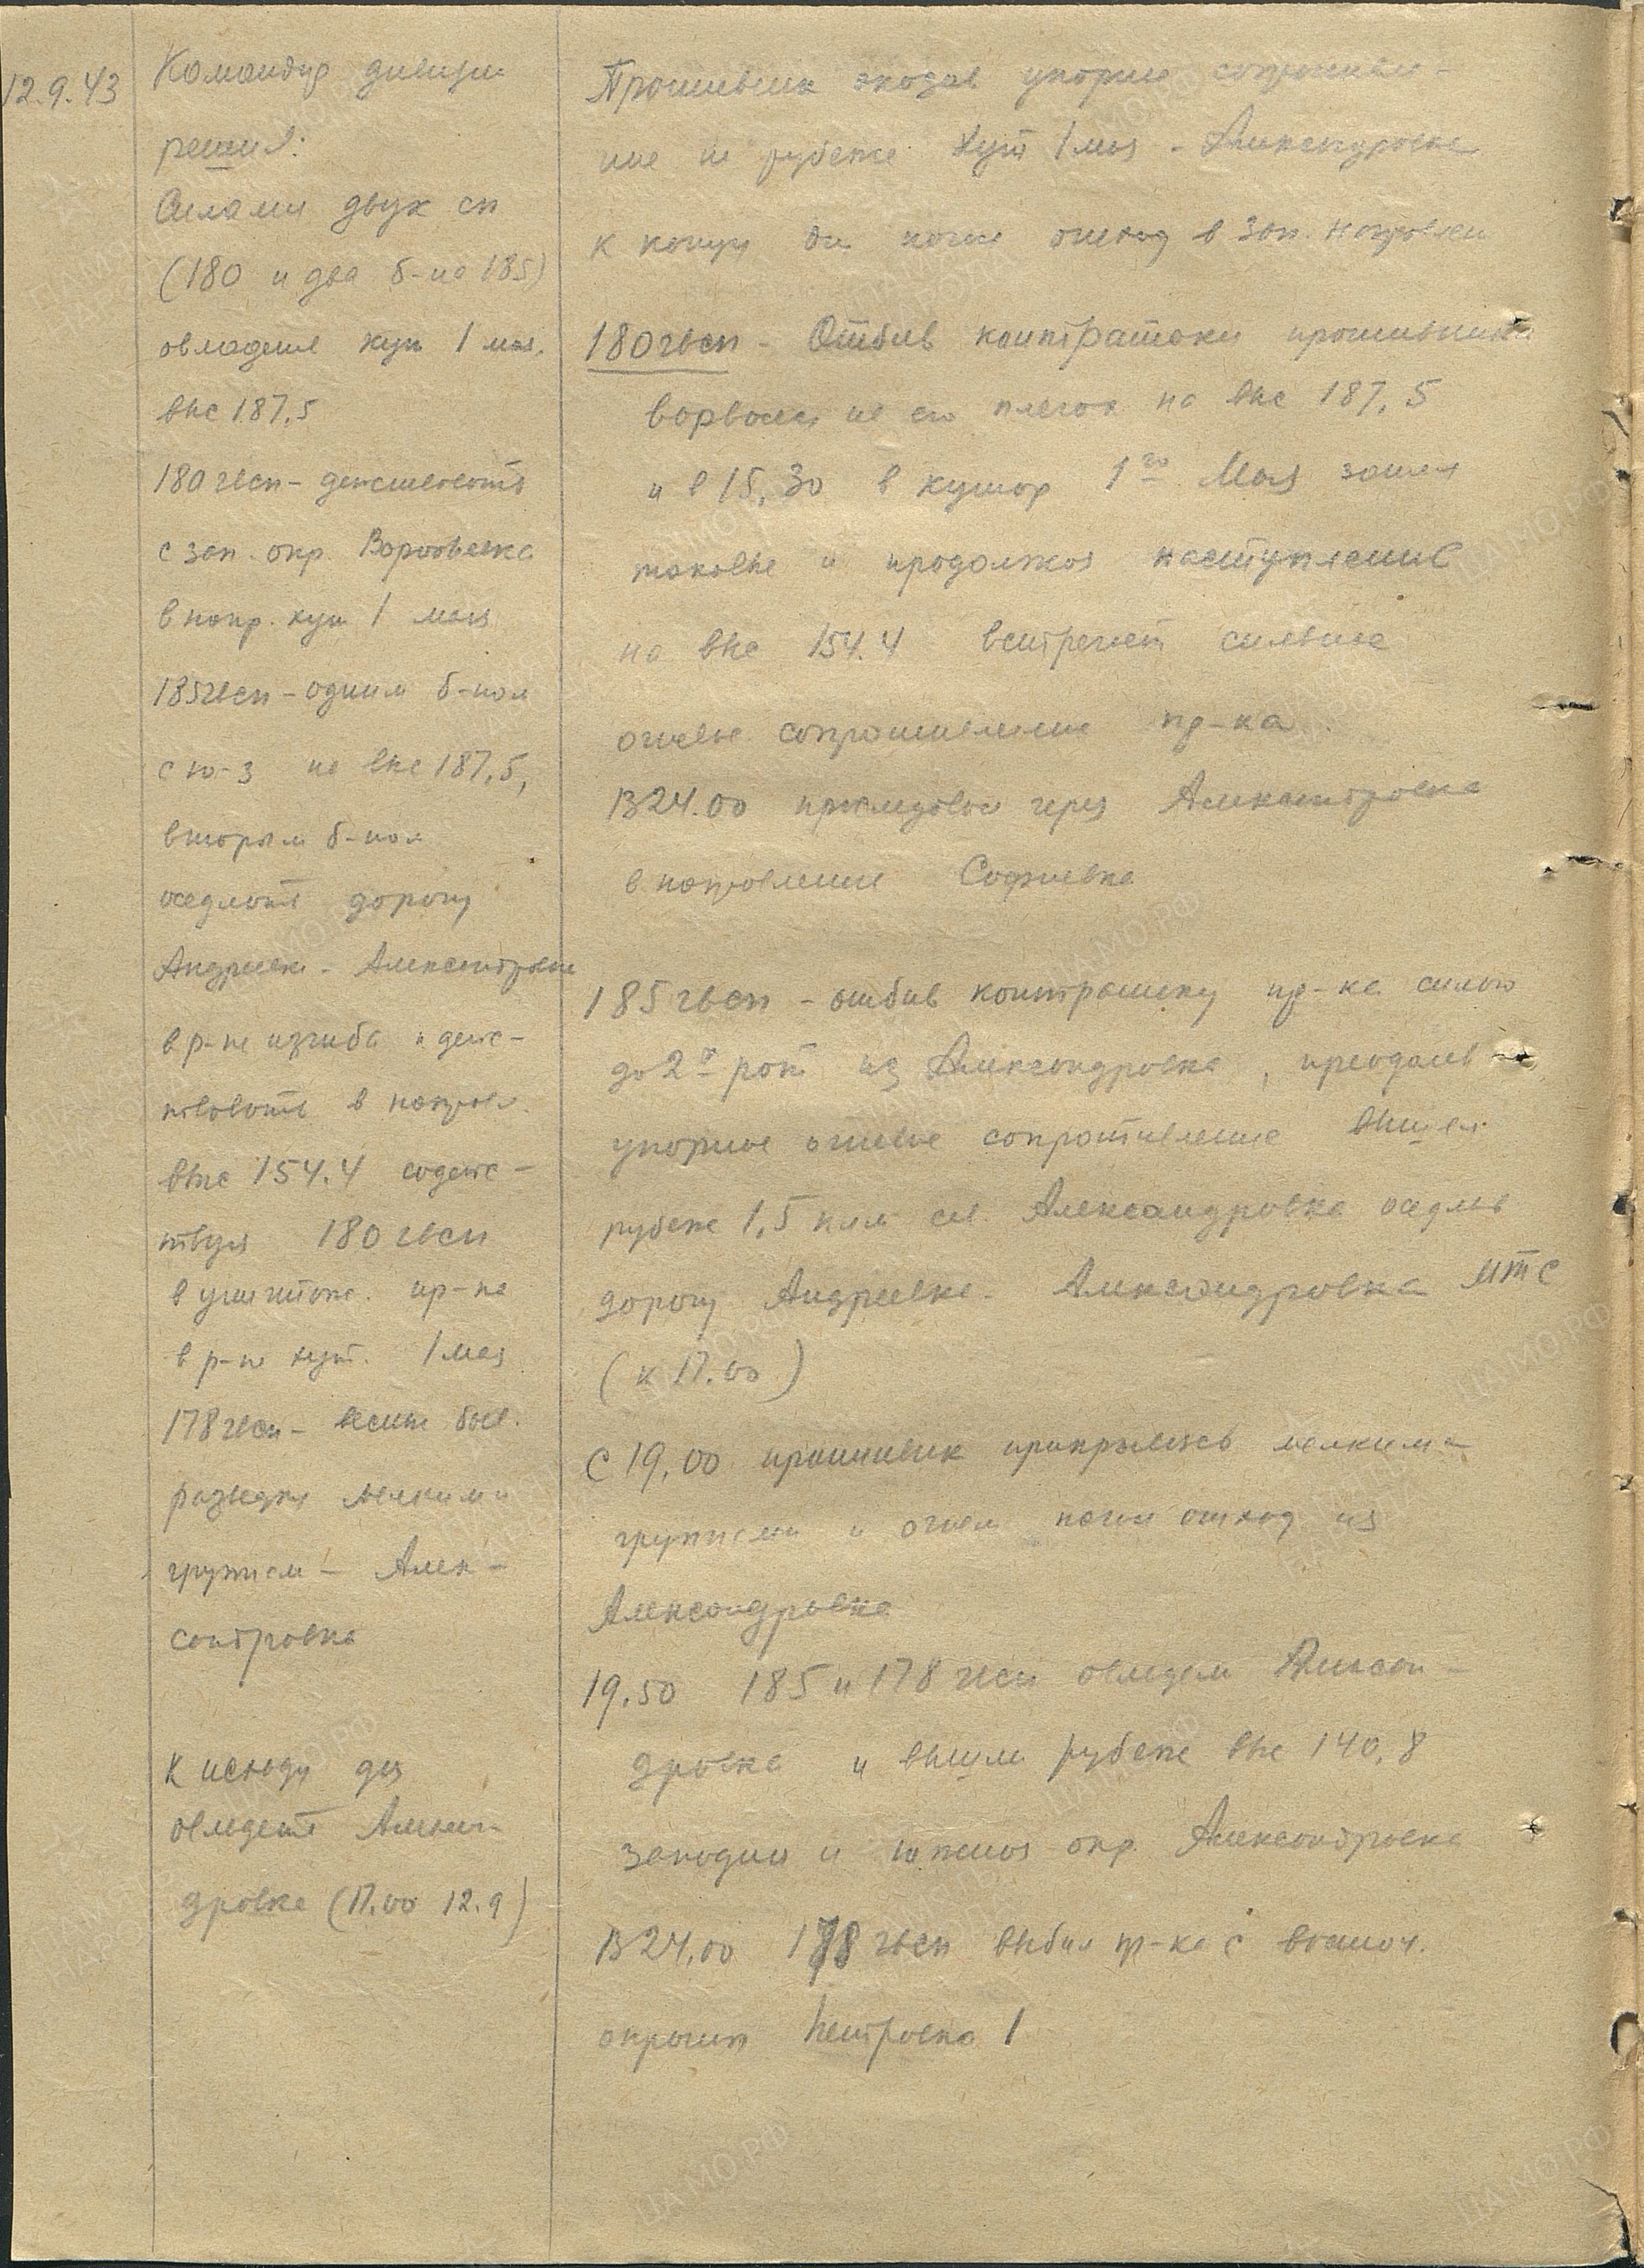 12.9.43
Командир дивизии
решил:
Силами двух сп
(180 и два б-на 185)
овладеть хут 1 мая,
выс 187,5
180 гвсп - действовать
с зап. окр. Воробьевка
в напр. хут 1 мая
185 гвсп - одним б-ном
с ю-з на выс 187,5,
вторым б-ном
оседлать дорогу
Андреевка - Александровка
в р-не изгиба и дейс-
твовать в направл.
выс 154.4 содейс-
твуя 180 гвсп
в уничтож. пр-ка
в р-не хут. 1 мая
178 гвсп - вести
разведку мелкими
группами - Алек-
сандровка
К исходу дня
овладеть Алексан-
дровка (17.00 12.9)
Противник оказав упорное сопротивле-
ние на рубеже Хут 1 мая - Александровка
к концу дня начал отход в зап. направлен
180 гвсп - Отбив контратаки противника
ворвался на его плечах на выс 187,5
и в 15,30 в хутор 1го Мая занял
таковые и продолжая наступление
на выс 154.4 встречает сильное
огневое сопротивление пр-ка.
В 24.00 преследовал через Александровка
в направлении Софиевка
185 гвсп - отбив контратаку пр-ка силою
до 2х рот из Александровка, преодолев
упорное огневое сопротивление вышел
рубеже 1,5 клм сев. Александровка оседлав
дорогу Андреевка - Александровка МТС
(к 17.00)
С 19,00 противник прикрываясь мелкими
группами и огнем начал отход из
Александровка
19.50 185 и 178 гвсп овладели Алексан-
дровка и вышли рубеже выс 140,8
западная и южная окр. Александровка
В 24,00 178 гвсп выбил пр-ка с восточ.
окраины Петровка 1